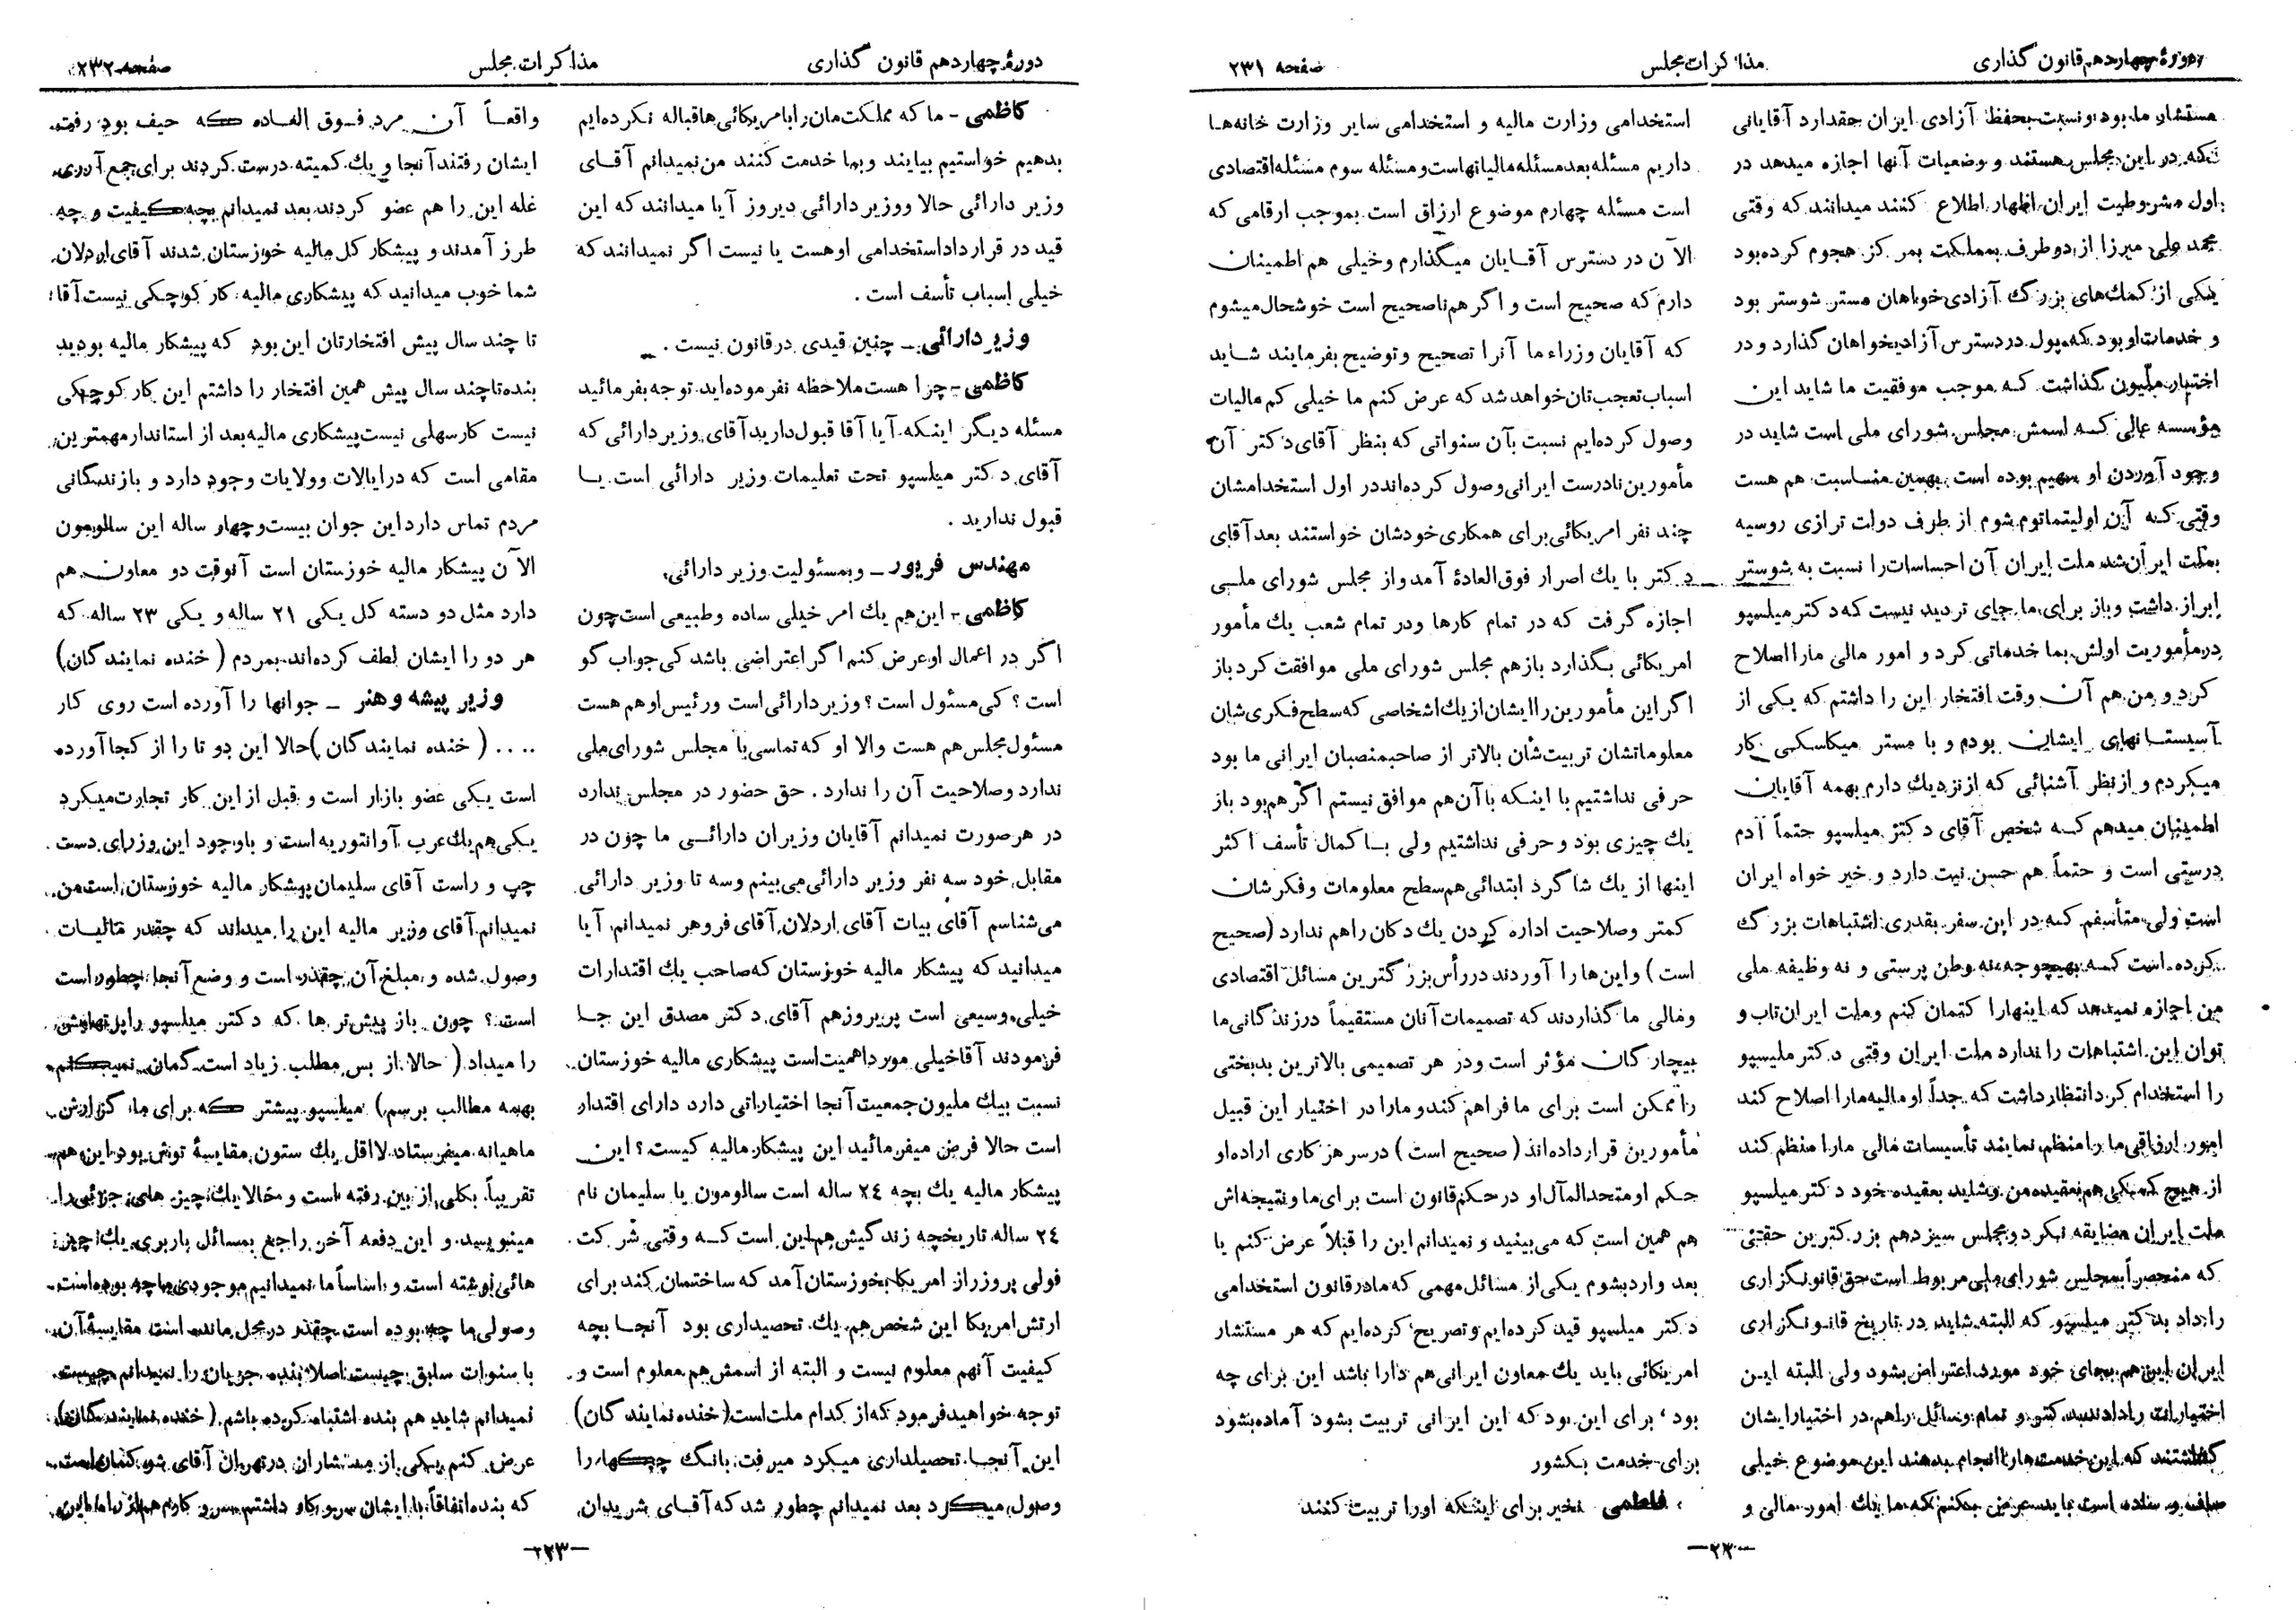 دورهٔ چهاردهم قانون گذاری
مذاکرات مجلس
صفحه ۲۳۱
مستشار ما بود و نسبت بحفظ آزادی ایران حقدارد آقایانی
که در این مجلس هستند و وضعیات آنها اجازه میدهد در
اول مشروطیت ایران اظهار اطلاع کنند میدانند که وقتی
محمد علی میرزا از دو طرف بمملکت بمرکز هجوم کرده بود
یکی از کمك‌های بزرگ آزادی‌خواهان مستر شوستر بود
و خدمات او بود که پول در دسترس آزادیخواهان گذارد و در
اختیار ملیون گذاشت که موجب موفقیت ما شاید این
مؤسسه عالی که اسمش مجلس شورای ملی است شاید در
وجود آوردن او سهیم بوده است بهمین مناسبت هم هست
وقتی که آن اولیتماتوم شوم از طرف دولت تزاری روسیه
بملت ایران شد ملت ایران آن احساسات را نسبت به شوستر
ابراز داشت و باز برای ما جای تردید نیست که دکتر میلسپو
در مأموریت اولش بما خدماتی کرد و امور مالی ما را اصلاح
کرد و من هم آن وقت افتخار این را داشتم که یکی از
آسیستانهای ایشان بودم و با مستر میکاسکی کار
میکردم و از نظر آشنائی که از نزدیك دارم بهمه آقایان
اطمینان میدهم که شخص آقای دکتر میلسپو حتماً آدم
درستی است و حتماً هم حسن نیت دارد و خیر خواه ایران
است ولی متأسفم که در این سفر بقدری اشتباهات بزرگ
کرده است که بهیچوجه نه وطن پرستی و نه وظیفه ملی
من اجازه نمیدهد که اینها را کتمان کنم و ملت ایران تاب و
توان این اشتباهات را ندارد ملت ایران وقتی دکتر ملیسپو
را استخدام کرد انتظار داشت که جداً او مالیه ما را اصلاح کند
امور ارزاقی ما را منظم نمایند تأسیسات مالی ما را منظم کند
از هیچ کمکی هم بعقیده من و شاید بعقیده خود دکتر میلسپو
ملت ایران مضایقه نکرد و مجلس سیزدهم بزرگترین حقی
که منحصراً بمجلس شورای ملی مربوط است حق قانونگزاری
را داد بدکتر میلسپو که البته شاید در تاریخ قانونگزاری
ایران این هم بجای خود مورد اعتراض بشود ولی البته این
اختیارات را دادند بدکتر و تمام وسائل را هم در اختیار ایشان
گذاشتند که این خدمت‌ها را انجام بدهند این موضوع خیلی
صاف و ساده است باید عرض بکنم که ما یك امور مالی و
استخدامی وزارت مالیه و استخدامی سایر وزارت خانه‌ها
داریم مسئله بعد مسئله مالیاتها است و مسئله سوم مسئله اقتصادی
است مسئله چهارم موضوع ارزاق است بموجب ارقامی که
الآن در دسترس آقایان میگذارم و خیلی هم اطمینان
دارم که صحیح است و اگر هم ناصحیح است خوشحال میشوم
که آقایان وزراء ما آنرا تصحیح و توضیح بفرمایند شاید
اسباب تعجب‌تان خواهد شد که عرض کنم ما خیلی کم مالیات
وصول کرده‌ایم نسبت بآن سنواتی که بنظر آقای دکتر آن
مأمورین نادرست ایرانی وصول کرده‌اند در اول استخدامشان
چند نفر امریکائی برای همکاری خودشان خواستند بعد آقای
دکتر با یك اصرار فوق العادهٔ آمد و از مجلس شورای ملی
اجازه گرفت که در تمام کارها و در تمام شعب یك مأمور
امریکائی بگذارد باز هم مجلس شورای ملی موافقت کرد باز
اگر این مأمورین را ایشان از یك اشخاصی که سطح فکری‌شان
معلوماتشان تربیت‌شان بالاتر از صاحبمنصبان ایرانی ما بود
حرفی نداشتیم با اینکه با آن هم موافق نیستم اگر هم بود باز
یك چیزی بود و حرفی نداشتیم ولی با کمال تأسف اکثر
اینها از یك شاگرد ابتدائی هم سطح معلومات و فکرشان
کمتر و صلاحیت اداره کردن یك دکان را هم ندارد (صحیح
است) و این‌ها را آوردند در رأس بزرگترین مسائل اقتصادی
و مالی ما گذاردند که تصمیمات آنان مستقیماً در زندگانی ما
بیچارگان مؤثر است و در هر تصمیمی بالاترین بدبختی
را ممکن است برای ما فراهم کند و ما را در اختیار این قبیل
مأمورین قرار داده‌اند (صحیح است) در سر هر کاری اراده او
حکم او متحدالمآل او در حکم قانون است برای ما و نتیجه‌اش
هم همین است که می‌بینید و نمیدانم این را قبلاً عرض کنم یا
بعد وارد بشوم یکی از مسائل مهمی که ما در قانون استخدامی
دکتر میلسپو قید کرده‌ایم و تصریح کرده‌ایم که هر مستشار
امریکائی باید یك معاون ایرانی هم دارا باشد این برای چه
بود، برای این بود که این ایرانی تربیت بشود آماده بشود
برای خدمت بکشور
فاطمی نخیر برای اینکه او را تربیت کنند
ـ۲۲ـ
دورهٔ چهاردهم قانون گذاری
مذاکرات مجلس
صفحه ۲۳۲
کاظمی ـ ما که مملکت‌مان را با امریکائی‌ها قباله نکرده‌ایم
بدهیم خواستیم بیایند و بما خدمت کنند من نمیدانم آقای
وزیر دارائی حالا و وزیر دارائی دیروز آیا میدانند که این
قید در قرارداد استخدامی او هست یا نیست اگر نمیدانند که
خیلی اسباب تأسف است.
وزیر دارائی ـ چنین قیدی در قانون نیست.
کاظمی ـ چرا هست ملاحظه نفرموده‌اید توجه بفرمائید
مسئله دیگر اینکه آیا آقا قبول دارید آقای وزیر دارائی که
آقای دکتر میلسپو تحت تعلیمات وزیر دارائی است یا
قبول ندارید.
مهندس فریور ـ و بمسئولیت وزیر دارائی،
کاظمی ـ این هم یك امر خیلی ساده و طبیعی است چون
اگر در اعمال او عرض کنم اگر اعتراضی باشد کی جواب گو
است؟ کی مسئول است؟ وزیر دارائی است و رئیس او هم هست
مسئول مجلس هم هست والا او که تماسی با مجلس شورای ملی
ندارد و صلاحیت آن را ندارد. حق حضور در مجلس ندارد
در هر صورت نمیدانم آقایان وزیران دارائی ما چون در
مقابل خود سه نفر وزیر دارائی می‌بینم و سه تا وزیر دارائی
می‌شناسم آقای بیات آقای اردلان آقای فروهر نمیدانم آیا
میدانید که پیشکار مالیه خوزستان که صاحب یك اقتدارات
خیلی وسیعی است پریروز هم آقای دکتر مصدق این جا
فرمودند آقا خیلی مورد اهمیت است پیشکاری مالیه خوزستان
نسبت بیك ملیون جمعیت آنجا اختیاراتی دارد دارای اقتدار
است حالا فرض میفرمائید این پیشکار مالیه کیست؟ این
پیشکار مالیه یك بچه ۲٤ ساله است سالومون یا سلیمان نام
۲٤ ساله تاریخچه زندگیش هم این است که وقتی شرکت
فولی بروزر از امریکا بخوزستان آمد که ساختمان کند برای
ارتش امریکا این شخص هم یك تحصیداری بود آنجا بچه
کیفیت آنهم معلوم نیست و البته از اسمش هم معلوم است و
توجه خواهید فرمود که از کدام ملت است (خنده نمایندگان)
این آنجا تحصیلداری میکرد میرفت بانگ چکها را
وصول میکرد بعد نمیدانم چطور شد که آقای شریدان
واقعاً آن مرد فوق العاده که حیف بود رفت
ایشان رفتند آنجا و یك کمیته درست کردند برای جمع آوری
غله این را هم عضو کردند بعد نمیدانم بچه کیفیت و چه
طرز آمدند و پیشکار کل مالیه خوزستان شدند آقای اردلان
شما خوب میدانید که پیشکاری مالیه کار کوچکی نیست آقا
تا چند سال پیش افتخارتان این بود که پیشکار مالیه بودید
بنده تا چند سال پیش همین افتخار را داشتم این کار کوچکی
نیست کار سهلی نیست پیشکاری مالیه بعد از استاندار مهمترین
مقامی است که در ایالات و ولایات وجود دارد و با زندگانی
مردم تماس دارد این جوان بیست و چهار ساله این سالومون
الآن پیشکار مالیه خوزستان است آنوقت دو معاون هم
دارد مثل دو دسته گل یکی ۲۱ ساله و یکی ۲۳ ساله که
هر دو را ایشان لطف کرده‌اند بمردم (خنده نمایندگان)
وزیر پیشه و هنر ـ جوانها را آورده است روی کار
.... (خنده نمایندگان) حالا این دو تا را از کجا آورده
است یکی عضو بازار است و قبل از این کار تجارت میکرد
یکی هم یك عرب آوانتوریه است و باوجود این وزرای دست
چپ و راست آقای سلیمان پیشکار مالیه خوزستان است من
نمیدانم آقای وزیر مالیه این را میداند که چقدر مالیات
وصول شده و مبلغ آن چقدر است و وضع آنجا چطور است
است؟ چون باز پیش‌تر ها که دکتر میلسپو راپرتهایش
را میداد (حالا از بس مطلب زیاد است گمان نمیکنم
بهمه مطالب برسم) میلسپو پیشتر که برای ما گزارش
ماهیانه میفرستاد لااقل یك ستون مقایسهٔ توش بود این هم
تقریباً بکلی از بین رفته است و حالا یك چیز های جزئی را
مینویسد و این دفعه آخر راجع بمسائل باربری یك چیز
هائی نوشته است و اساساً ما نمیدانیم موجودی ما چه بوده است
وصولی ما چه بوده است چقدر در محل مانده است مقایسهٔ آن
با سنوات سابق چیست اصلا بنده جریان را نمیدانم چیست
نمیدانم شاید هم بنده اشتباه کرده باشم (خنده نمایندگان)
عرض کنم یکی از مستشاران در تهران آقای شوکتمان است
که بنده اتفاقاً با ایشان سر و کار داشتم سر و کارم هم از راه این
ـ۲۲۳ـ